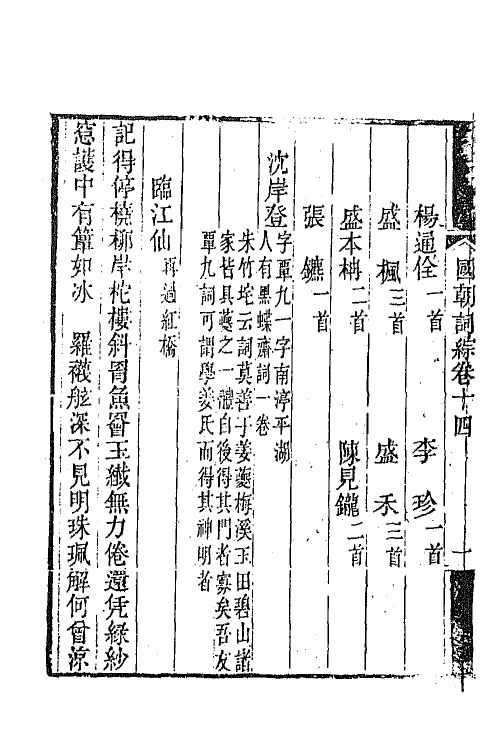 國朝詞綜卷十四 一
楊通佺一首 李珍一首
盛楓三首 盛禾三首
盛本柟二首 陳見鑨二首
張鑣一首
沈岸登字覃九一字南渟平湖
人有黑蝶齋詞一卷
朱竹垞云詞莫善于姜夔梅溪玉田碧山諸
家皆具夔之一體自後得其門者寡矣吾友
覃九詞可謂學姜氏而得其神明者
臨江仙再過紅橋
記得停橈柳岸柁樓斜罥魚罾玉纖無力倦還凭綠紗
窓護中有簟如冰 羅襪舷深不見明珠珮解何曾涼